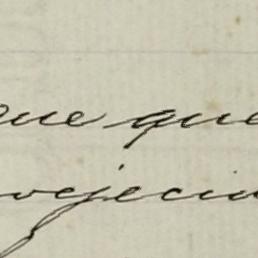 que que
vejecin